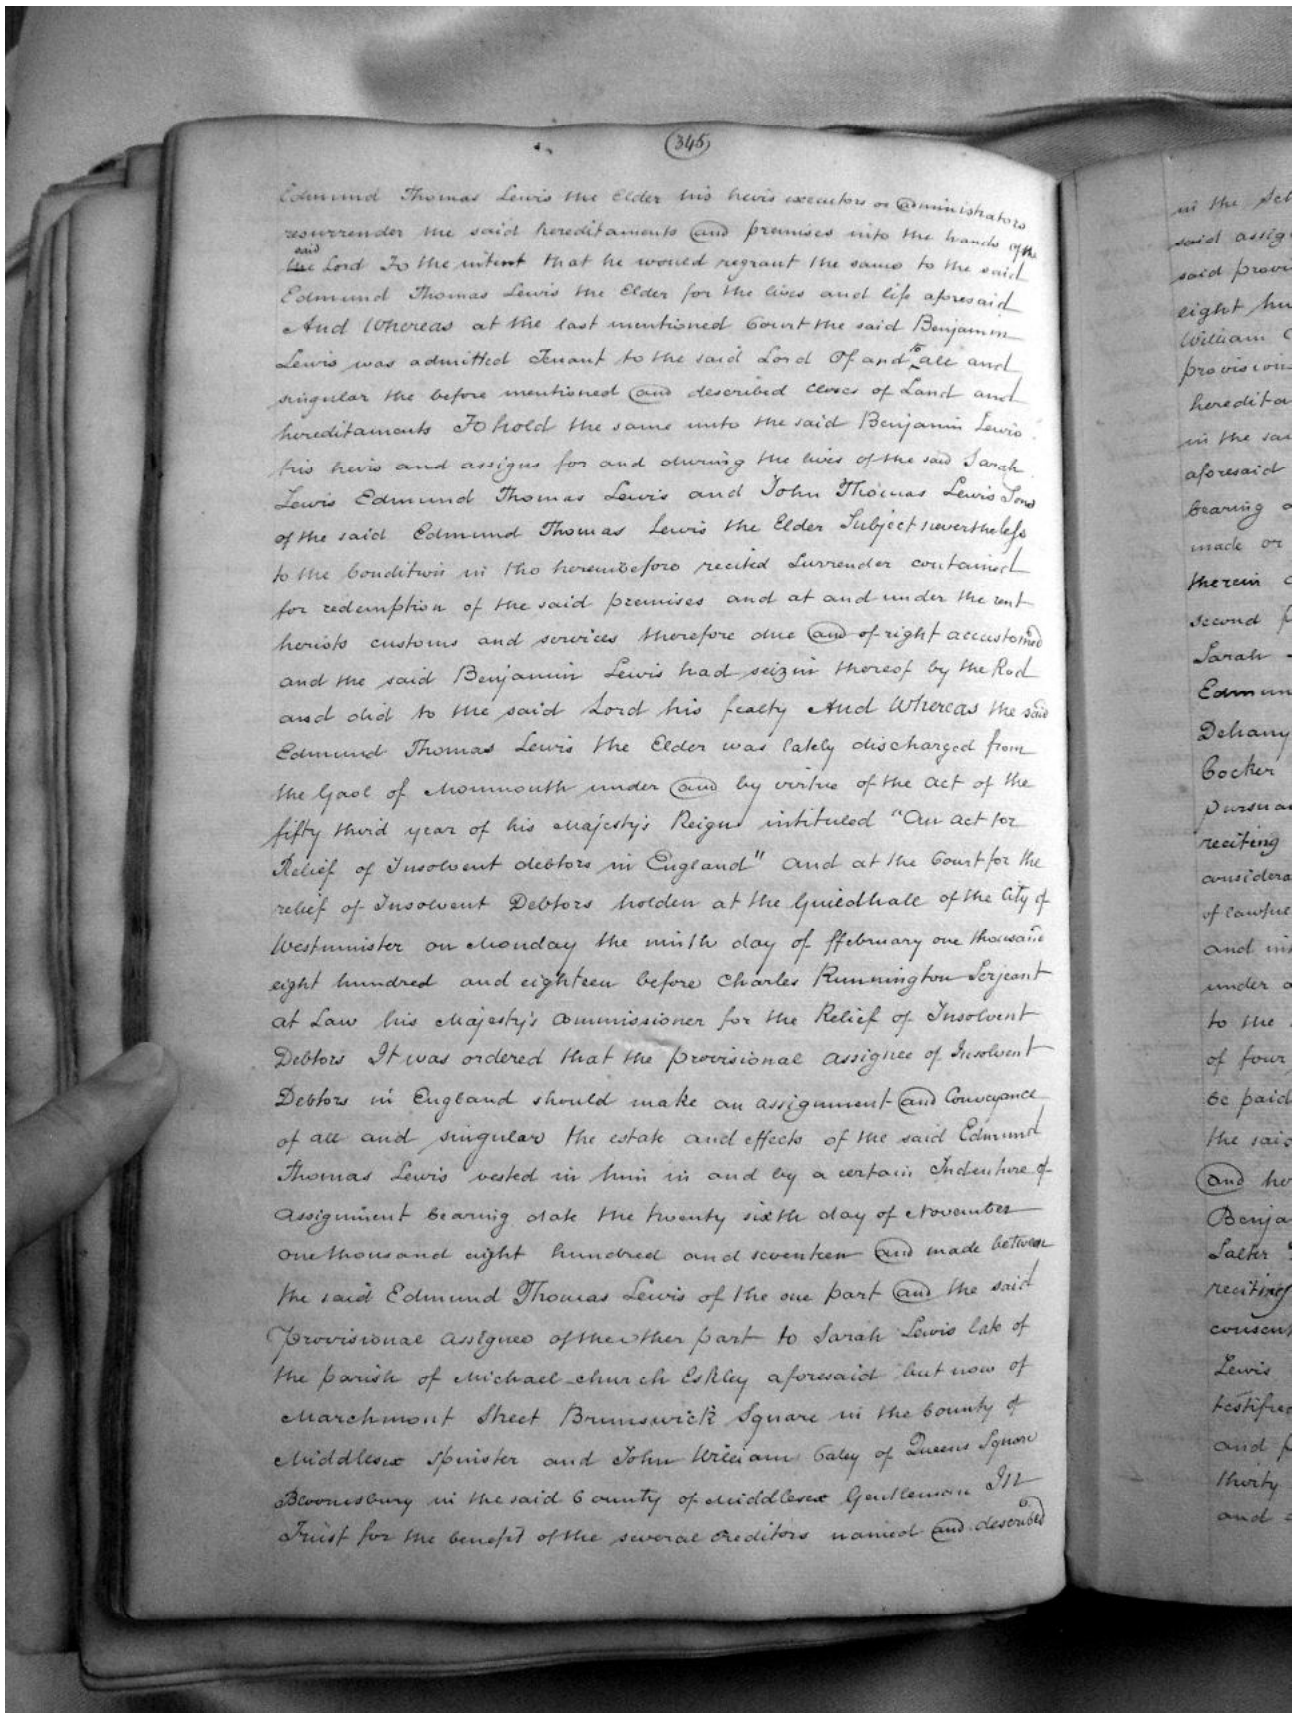 345
Edmund Thomas Lewis the Elder his heirs executors or administrators
resurrender the said hereditaments and premises into the hands of the
said
the Lord To the intent that he would regrant the same to the said
Edmund Thomas Lewis the Elder for the lives and life aforesaid
And Whereas at the last mentioned Court the said Benjamin
Lewis was admitted Tenant to the said Lord Of and to all and
singular the before mentioned and described closes of Land and
hereditaments To hold the same unto the said Benjamin Lewis
his heirs and assigns for and during the lives of the said Sarah
Lewis Edmund Thomas Lewis and John Thomas Lewis Sons
of the said Edmund Thomas Lewis the Elder Subject nevertheless
to the Condition in the hereinbefore recited Surrender contained
for redemption of the said premises and at and under the rent
heriots customs and services therefore due and of right accustomed
and the said Benjamin Lewis had seizin thereof by the Rod
and did to the said Lord his fealty And Whereas the said
Edmund Thomas Lewis the Elder was lately discharged from
the Gaol of Monmouth under and by virtue of the act of the
fifty third year of his Majesty's Reign intituled "An act for
Relief of Insolvent debtors in England" and at the Court for the
relief of Insolvent Debtors holden at the Guildhall of the City of
Westminster on Monday the ninth day of ffebruary one thousand
eight hundred and eighteen before Charles Runnington Serjeant
at Law his Majesty's Commissioner for the Relief of Insolvent
Debtors It was ordered that the provisional assignee of Insolvent
Debtors in England should make an assignment and Conveyance
of all and singular the estate and effects of the said Edmund
Thomas Lewis vested in him in and by a certain Indenture of
assignment bearing date the twenty sixth day of November
one thousand eight hundred and seventeen and made between
the said Edmund Thomas Lewis of the one part and the said
Provisional assignee of the other part to Sarah Lewis late of
the parish of Michael church Eskley aforesaid but now of
Marchmont Street Brunswick Square in the County of
Middlesex Spinster and John William Galey of Queens Square
Bloomsbury in the said County of Middlesex Gentleman In
Trust for the benefit of the several creditors named and described
in the
said
said
eight
William
provision
in the
aforesaid
bearing
made or
therein
second
Sarah
Cocker
reciting
and
under
to the
of four
be paid
the said
and
reciting
Lewis
and
thirty
and